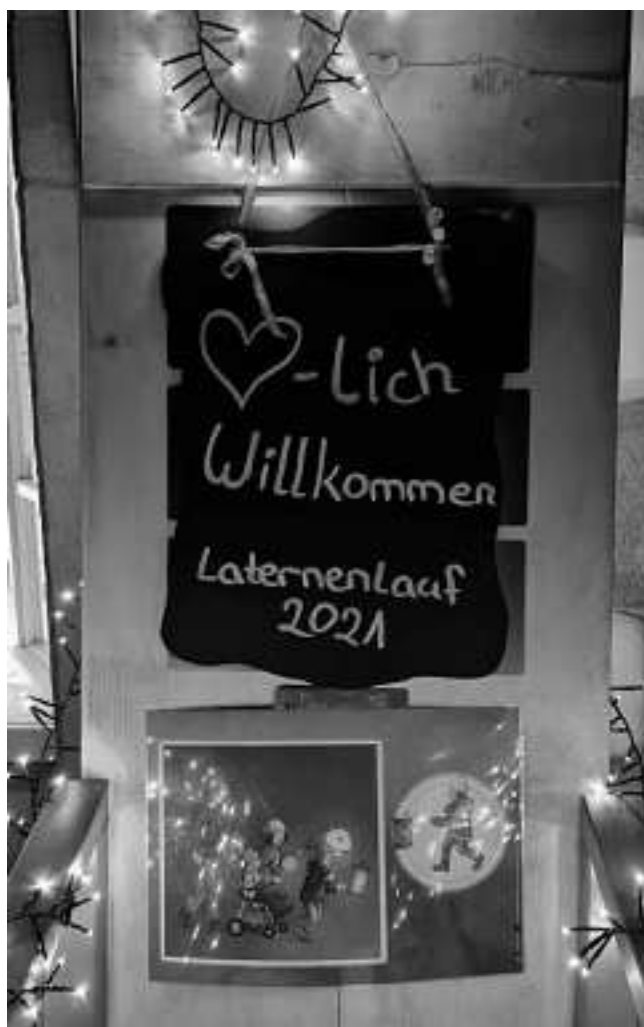 ♡-Lich
Willkommen
Laternenlauf
2021